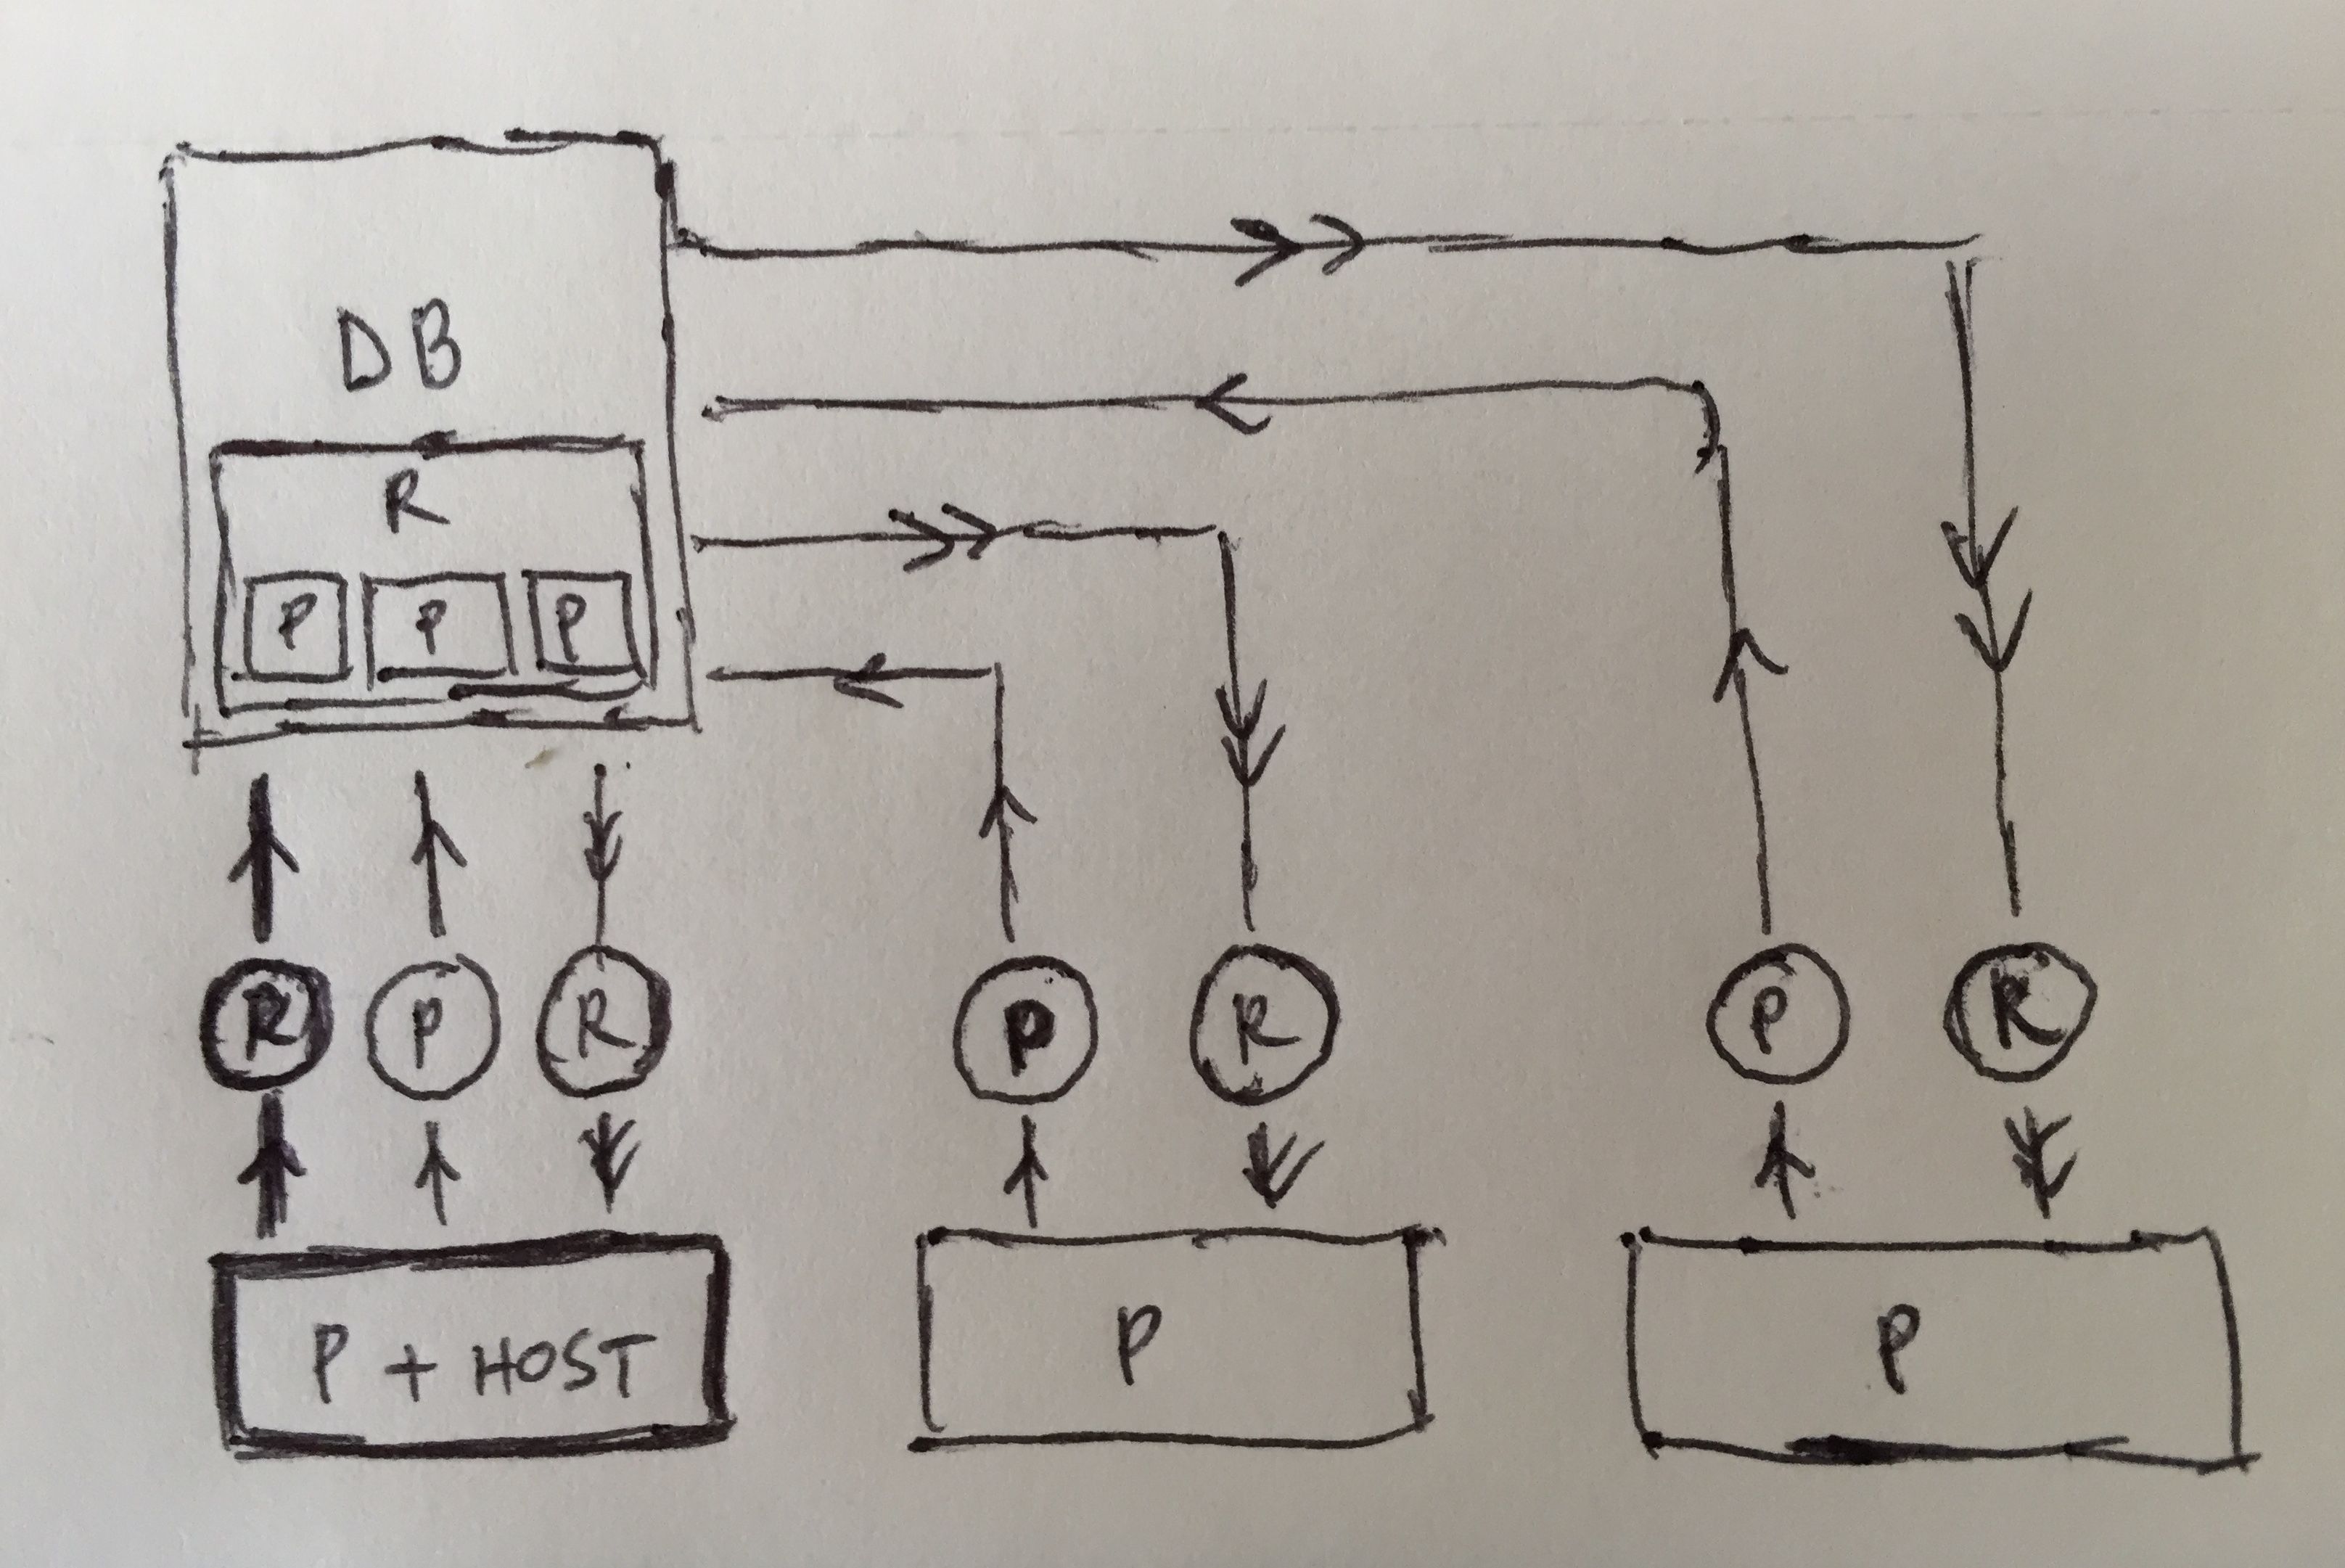 DB
R
P P P
R P R P R P R
P + HOST P P